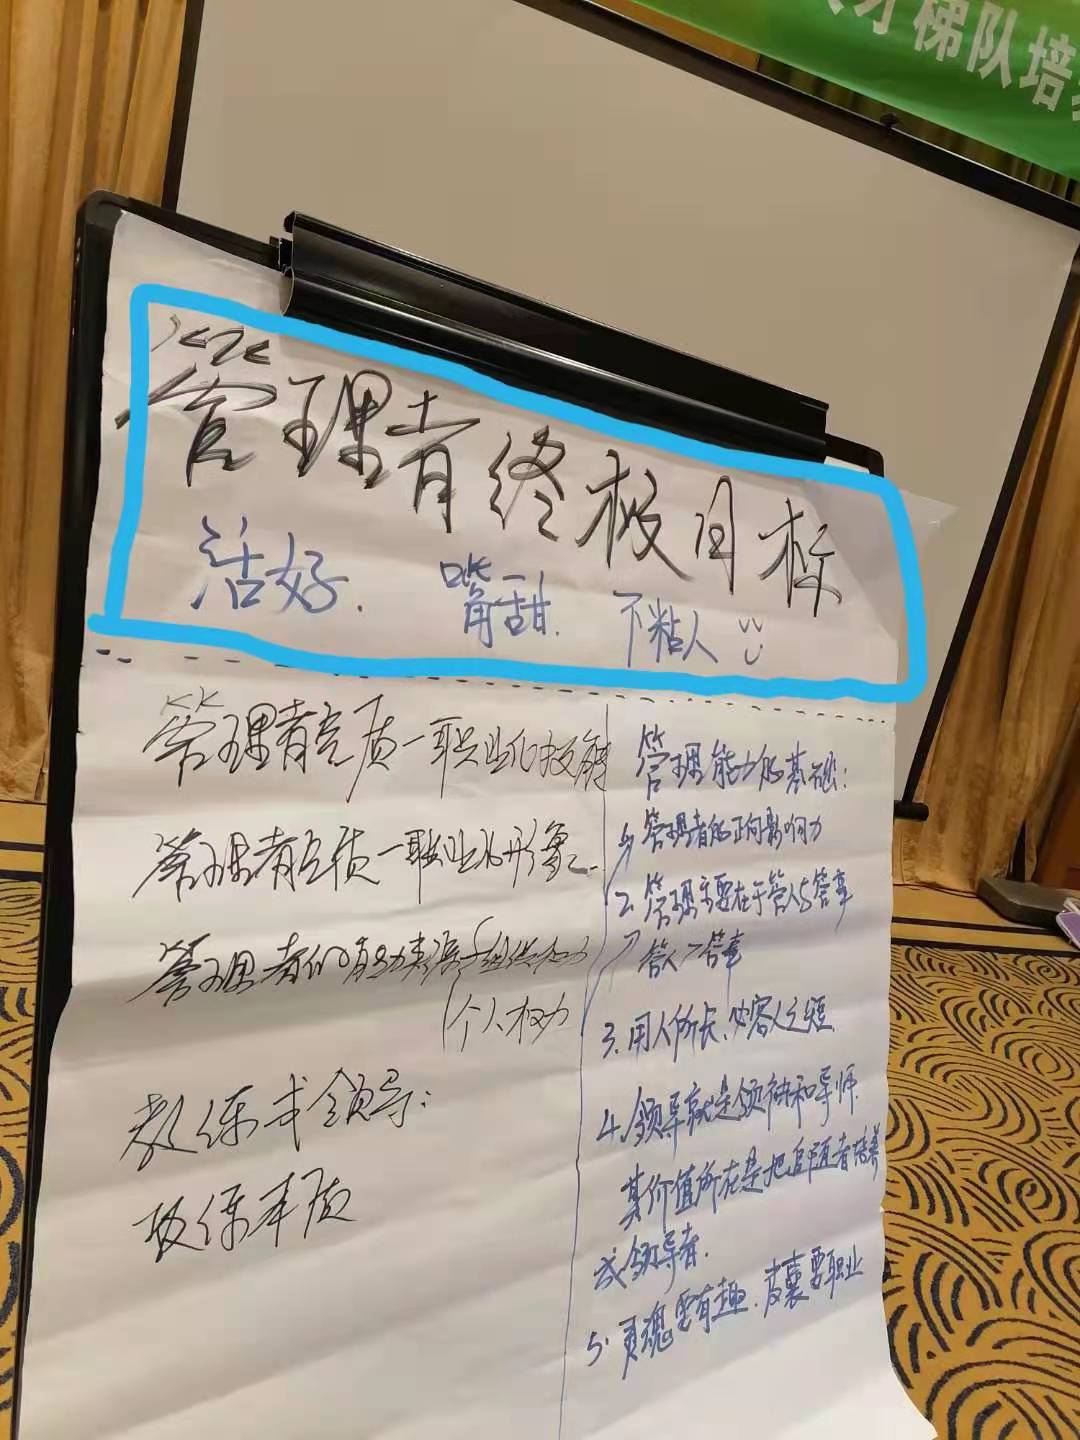 才梯队培
管理者终极目标
活好. 嘴甜. 不粘人
管理者实质一职业化技能
管理者品质一职业化形象
管理者的动力来源 组织权力
个人权力
教练式领导:
教练本质
管理能力的基础:
1. 管理者的正向影响力
2. 管理主要在于管人与管事
管人>管事
3. 用人所长、必容人之短.
4. 领导就是领袖和导师.
其价值所在是把追随者培养
成领导者.
5. 灵魂要有趣. 皮囊要职业